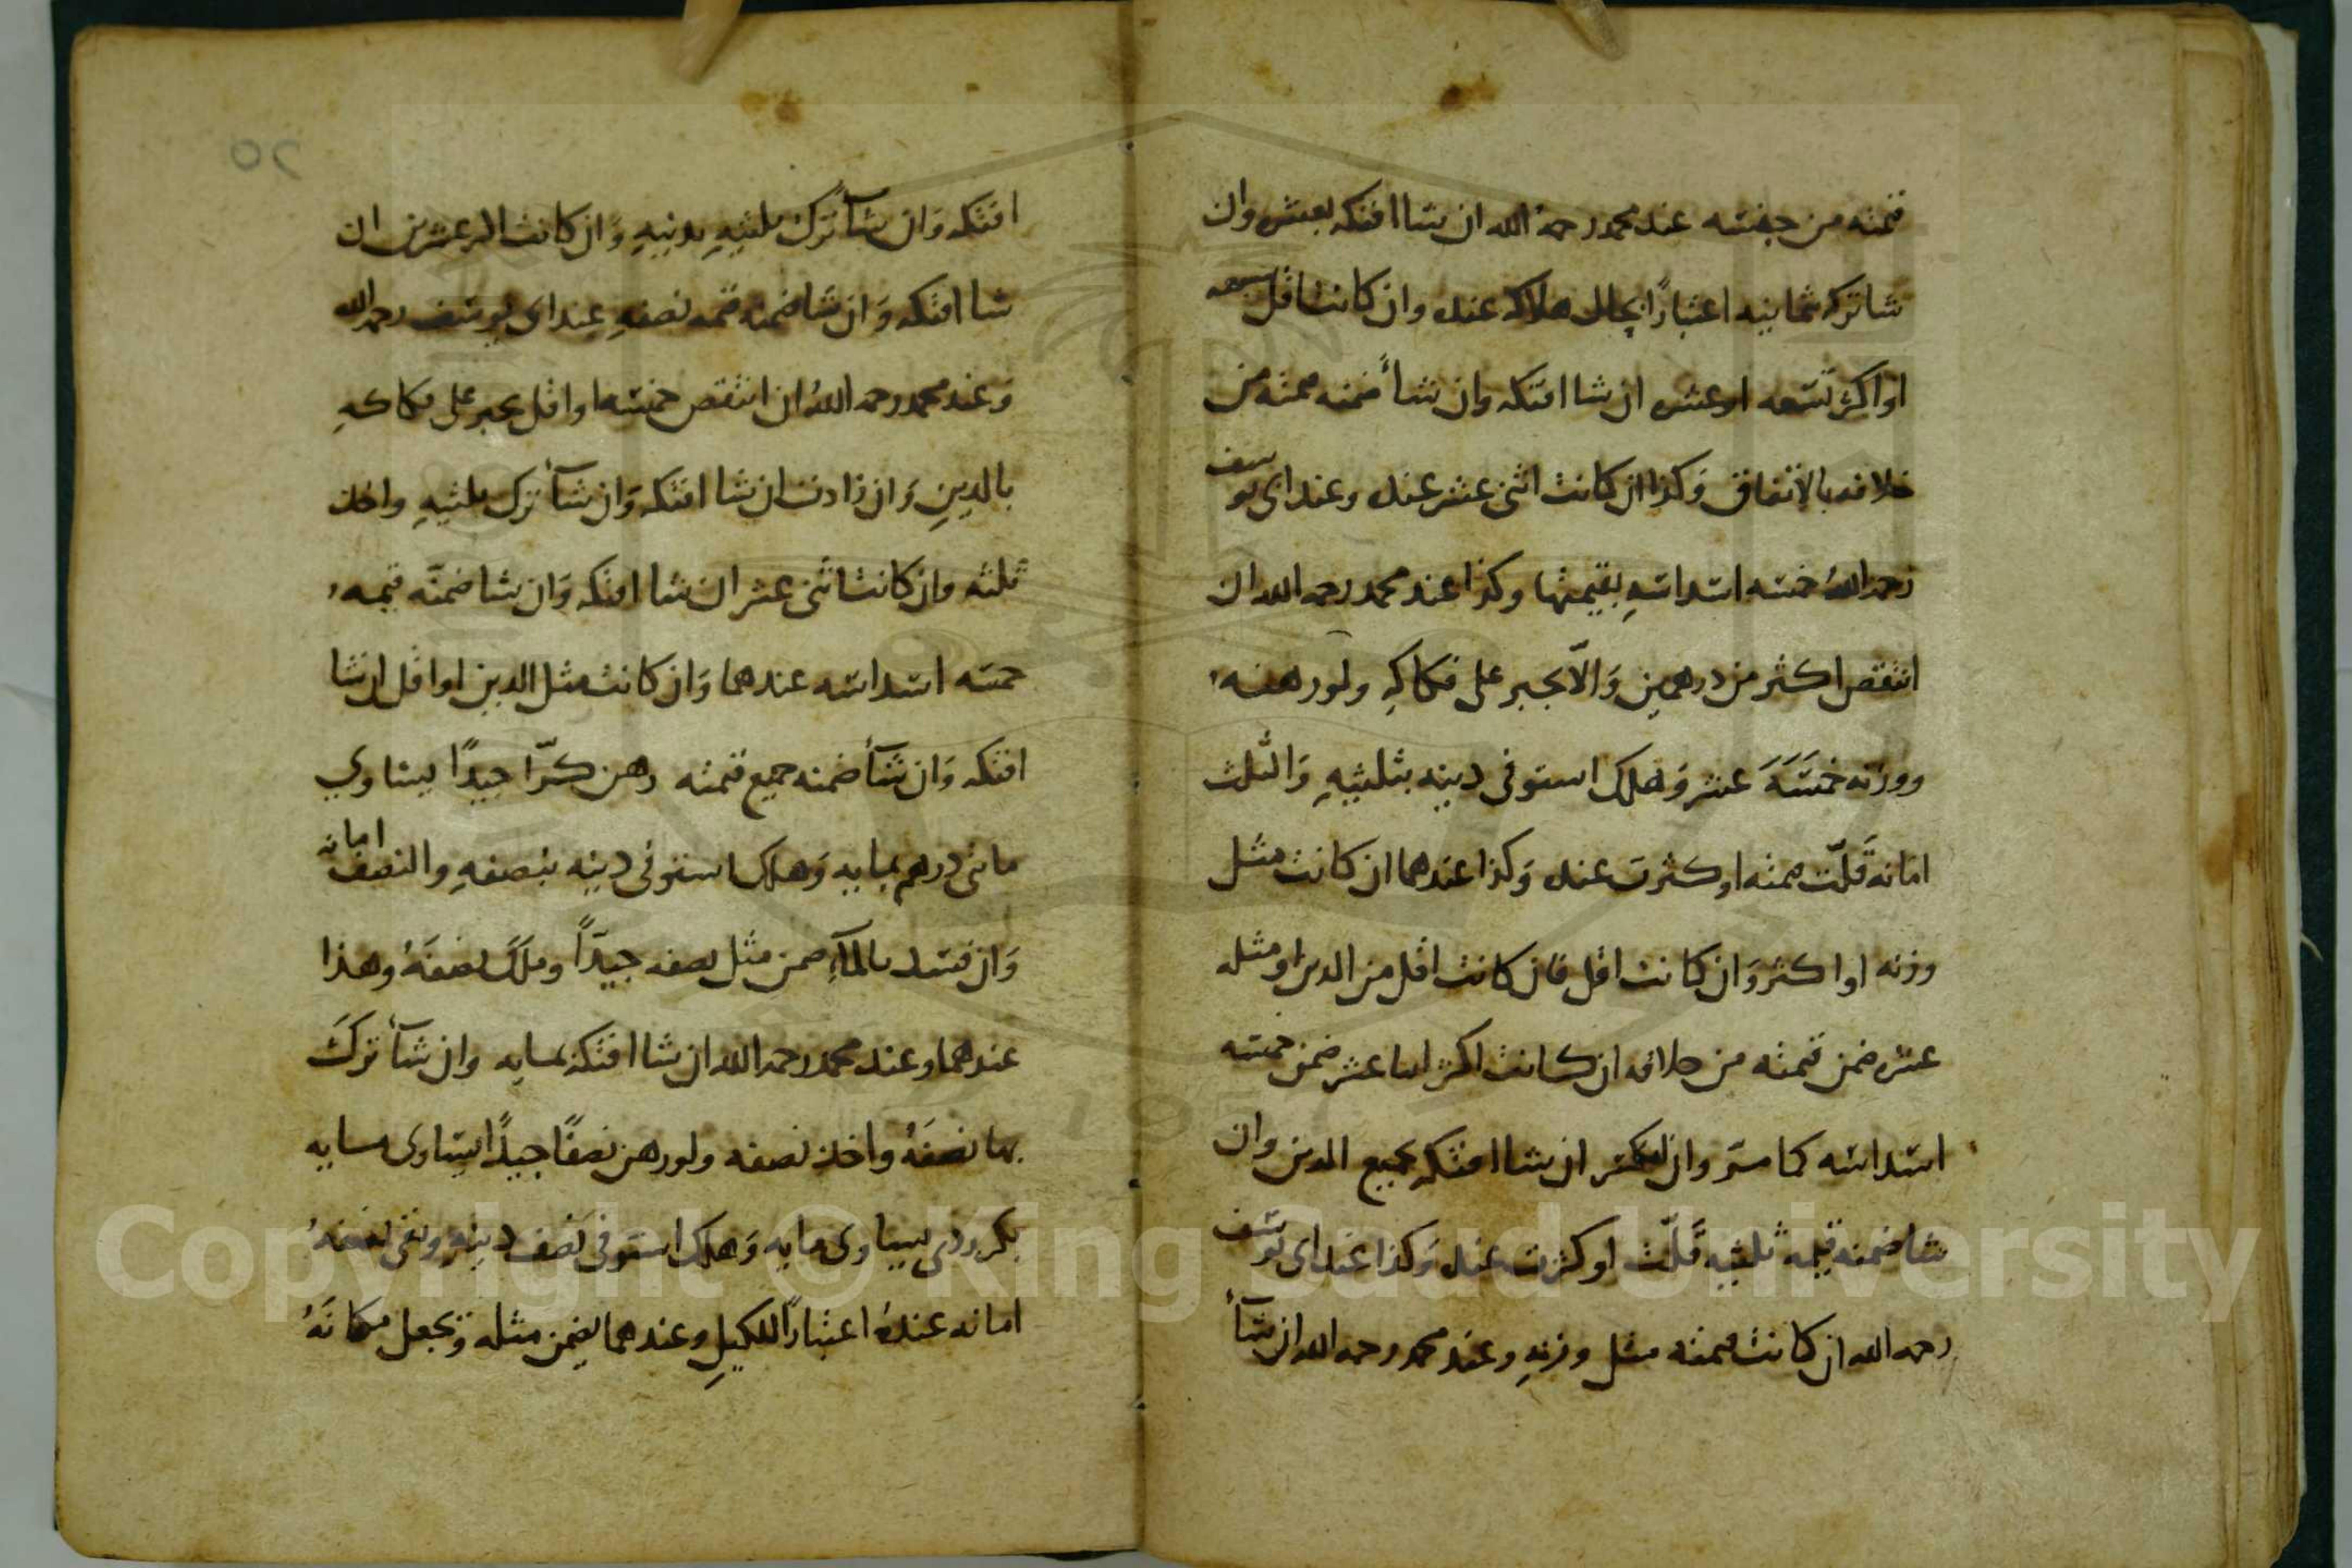 قيمته من جنسه عند محمد رحمه الله ان شا افتكه بعشره وان
شا تركه بثمانيه اعتبارًا بحال هلاكه عنده وان كانت اقل سبعه
او اكثر تسعه او عشره ان شا افتكه وان شأ ضمنه قيمته من
خلافه بالاتفاق وَكذا ان كانت اثنى عشر عنده وعند ابى يوسف
رحمه اللهُ خمسه اسداسهِ بقيمتها وكذا عند محمد رحمه الله ان
انتقص اكثر من درهمين وَالّا يجبر على فكاكهِ ولو رهنه
ووزنه خَمسَةَ عشر وَهلك استوفى دينه بثلثيهِ وَالثلث
امانه قَلّت قيمته او كثرت عنده وَكذا عندهما ان كانت مثل
وزنه او اكثر وَان كانت اقل فان كانت اقل من الدين او مثله
عشره ضمن قيمته من خلافه ان كانت اكثر اثنا عشر ضمن خمسه
اسداسه كما مرّ وان انكسر ان شا افتكه بجميع الدين وان
شا ضمنه قيمه ثلثيه قَلّت او كثرت عنده وَكذا عند ابى يوسف
رحمه الله ان كانت قيمته مثل وزنهِ وعند محمد رحمه الله ان شآء
افتكه وَان شآء ترك ثلثيهِ بدينهِ وَان كانت اكثر عشرين ان
شا افتكه وَان شا ضمنه قيمه نصفهِ عند ابى يوسف رحمه الله
وَعند محمد رحمه اللهُ ان انتقص خمسها او اقل يجبر على فكاكهِ
بالدينِ وَان زادت ان شا افتكه وَان شآء ترك ثلثيهِ واخذ
ثلثه وان كانت اثنى عشر ان شا افتكه وَان شا ضمنّه قيمه
خمسه اسداسه عندهما وَان كانت مثل الدين او اقل ان شا
افتكه وَان شآء ضمنه جميع قيمته رهن كرّا جيدًا يساوي
مائتى درهم بمايه وَهلك استوفى دينه بنصفهِ والنصف امانه
وَان فسد بالمآءِ ضمن مثل نصفه جيدًا وملك نصفَهُ وهذا
عندهما وعند محمد رحمه الله ان شا افتكه بمايه وان شآء تركَ
بها نصفَهُ واخذ نصفه ولو رهن نصفًا جيدًا يساوى مايه
بكر ردى يساوى مايه وَهلك استوفى نصف دينهِ وبقى نصفهُ
امانه عنده اعتبارًا للكيلِ وعندهما يضمن مثله وَيجعل مكانَهُ
٢٥
Copyright © King Saud University